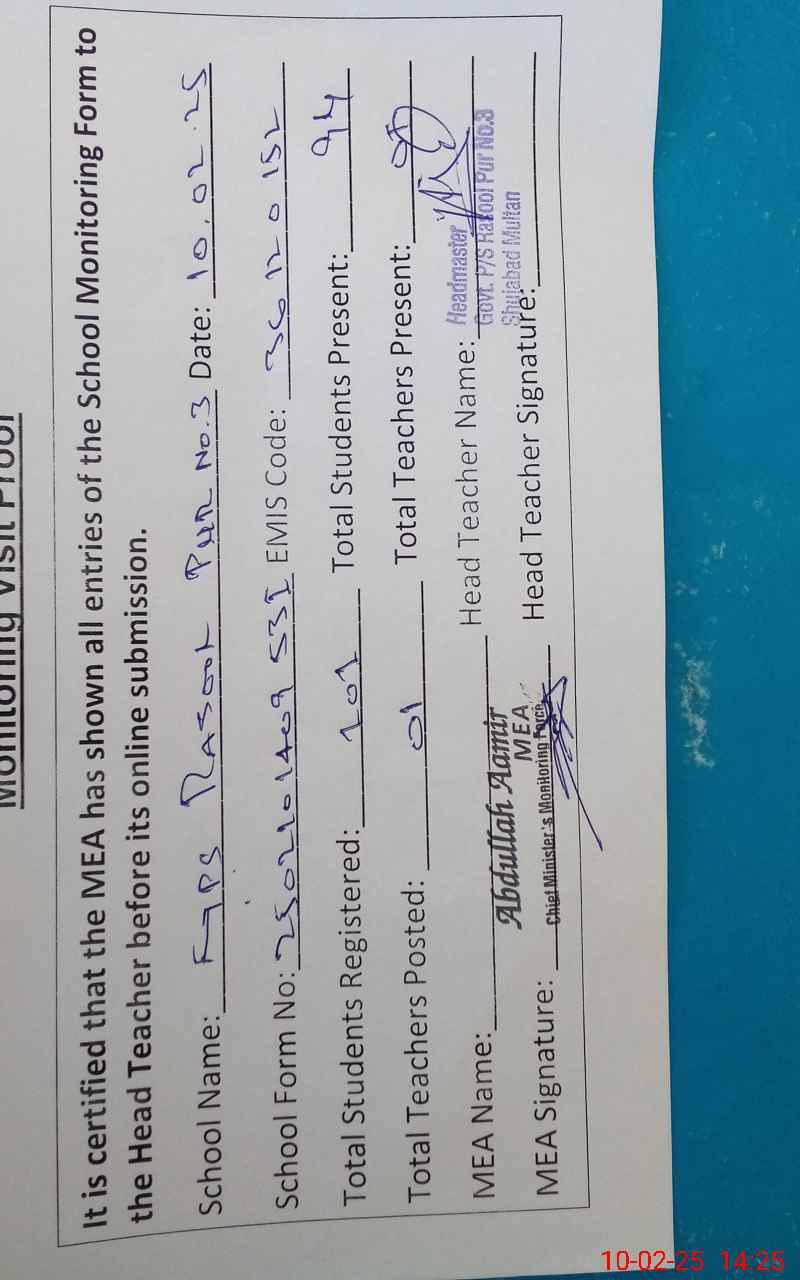 Monitoring Visit Proof
It is certified that the MEA has shown all entries of the School Monitoring Form to
the Head Teacher before its online submission.
School Name: GPS RASOOL PUR No.3 Date: 10.02.25
School Form No: EMIS Code: 36120152
Total Students Registered: 101 Total Students Present: 94
Total Teachers Posted: 01 Total Teachers Present: 01
MEA Name: Abdullah Aamir Head Teacher Name: Headmaster
MEA Govt. P/S Rasool Pur No.3
Chief Minister's Monitoring Force Shujabad Multan
MEA Signature: Head Teacher Signature:
10-02-25 14:25